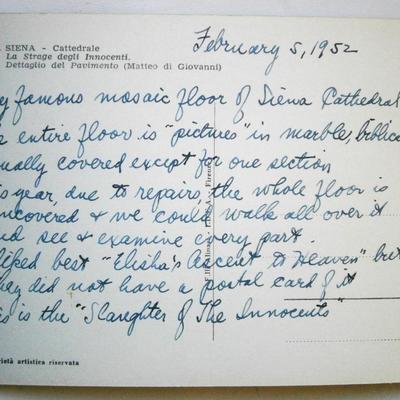 SIENA - Cattedrale
La Strage degli Innocenti.
Dettaglio del Pavimento (Matteo di Giovanni)
February 5, 1952
famous mosaic floor of Siena Cathedral
entire floor is "pictures" in marble, biblica
ually covered except for one section
is year, due to repairs, the whole floor is
ncovered & we could walk all over it
nd see & examine every part.
liked best "Elisha's Ascent to Heaven" but
hey did not have a postal card of it
is is the "Slaughter of The Innocents"
rietà artistica riservata